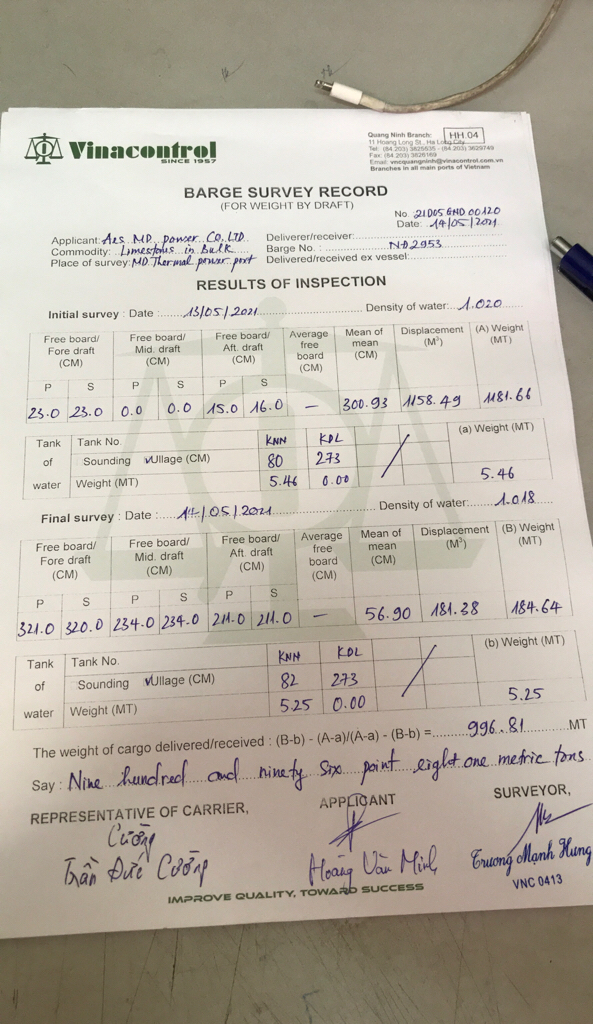 Vinacontrol
SINCE 1957
Quang Ninh Branch: HH.04
11 Hoang Long St., Ha Long City
Tel: (84.203) 3825535 - (84.203) 3629749
Fax: (84.203) 3826169
Email: vncquangninh@vinacontrol.com.vn
Branches in all main ports of Vietnam
BARGE SURVEY RECORD
(FOR WEIGHT BY DRAFT)
No. 21D05GND00120
Date: 14/05/2021
Applicant: Aes MD power CO. LTD Deliverer/receiver:
Commodity: Limestone in Bulk Barge No. : NĐ2953
Place of survey: MD Thermal power port Delivered/received ex vessel:
RESULTS OF INSPECTION
Initial survey : Date : 13/05/2021 Density of water: 1.020
Free board/ Fore draft (CM) Free board/ Mid. draft (CM) Free board/ Aft. draft (CM) Average free board (CM) Mean of mean (CM) Displacement (M³) (A) Weight (MT)
P S P S P S
23.0 23.0 0.0 0.0 15.0 16.0 — 300.93 1158.49 1181.66
Tank of water Tank No. KNN KDL (a) Weight (MT)
Sounding ✓Ullage (CM) 80 273
Weight (MT) 5.46 0.00 5.46
Final survey : Date : 14/05/2021 Density of water: 1.018
Free board/ Fore draft (CM) Free board/ Mid. draft (CM) Free board/ Aft. draft (CM) Average free board (CM) Mean of mean (CM) Displacement (M³) (B) Weight (MT)
P S P S P S
321.0 320.0 234.0 234.0 211.0 211.0 — 56.90 181.38 184.64
Tank of water Tank No. KNN KDL (b) Weight (MT)
Sounding ✓Ullage (CM) 82 273
Weight (MT) 5.25 0.00 5.25
The weight of cargo delivered/received : (B-b) - (A-a)/(A-a) - (B-b) = 996.81 MT
Say : Nine hundred and ninety six point eight one metric tons
REPRESENTATIVE OF CARRIER, APPLICANT SURVEYOR,
Cường
Trần Đức Cường Hoàng Văn Minh Trương Mạnh Hung
VNC 0413
IMPROVE QUALITY, TOWARD SUCCESS